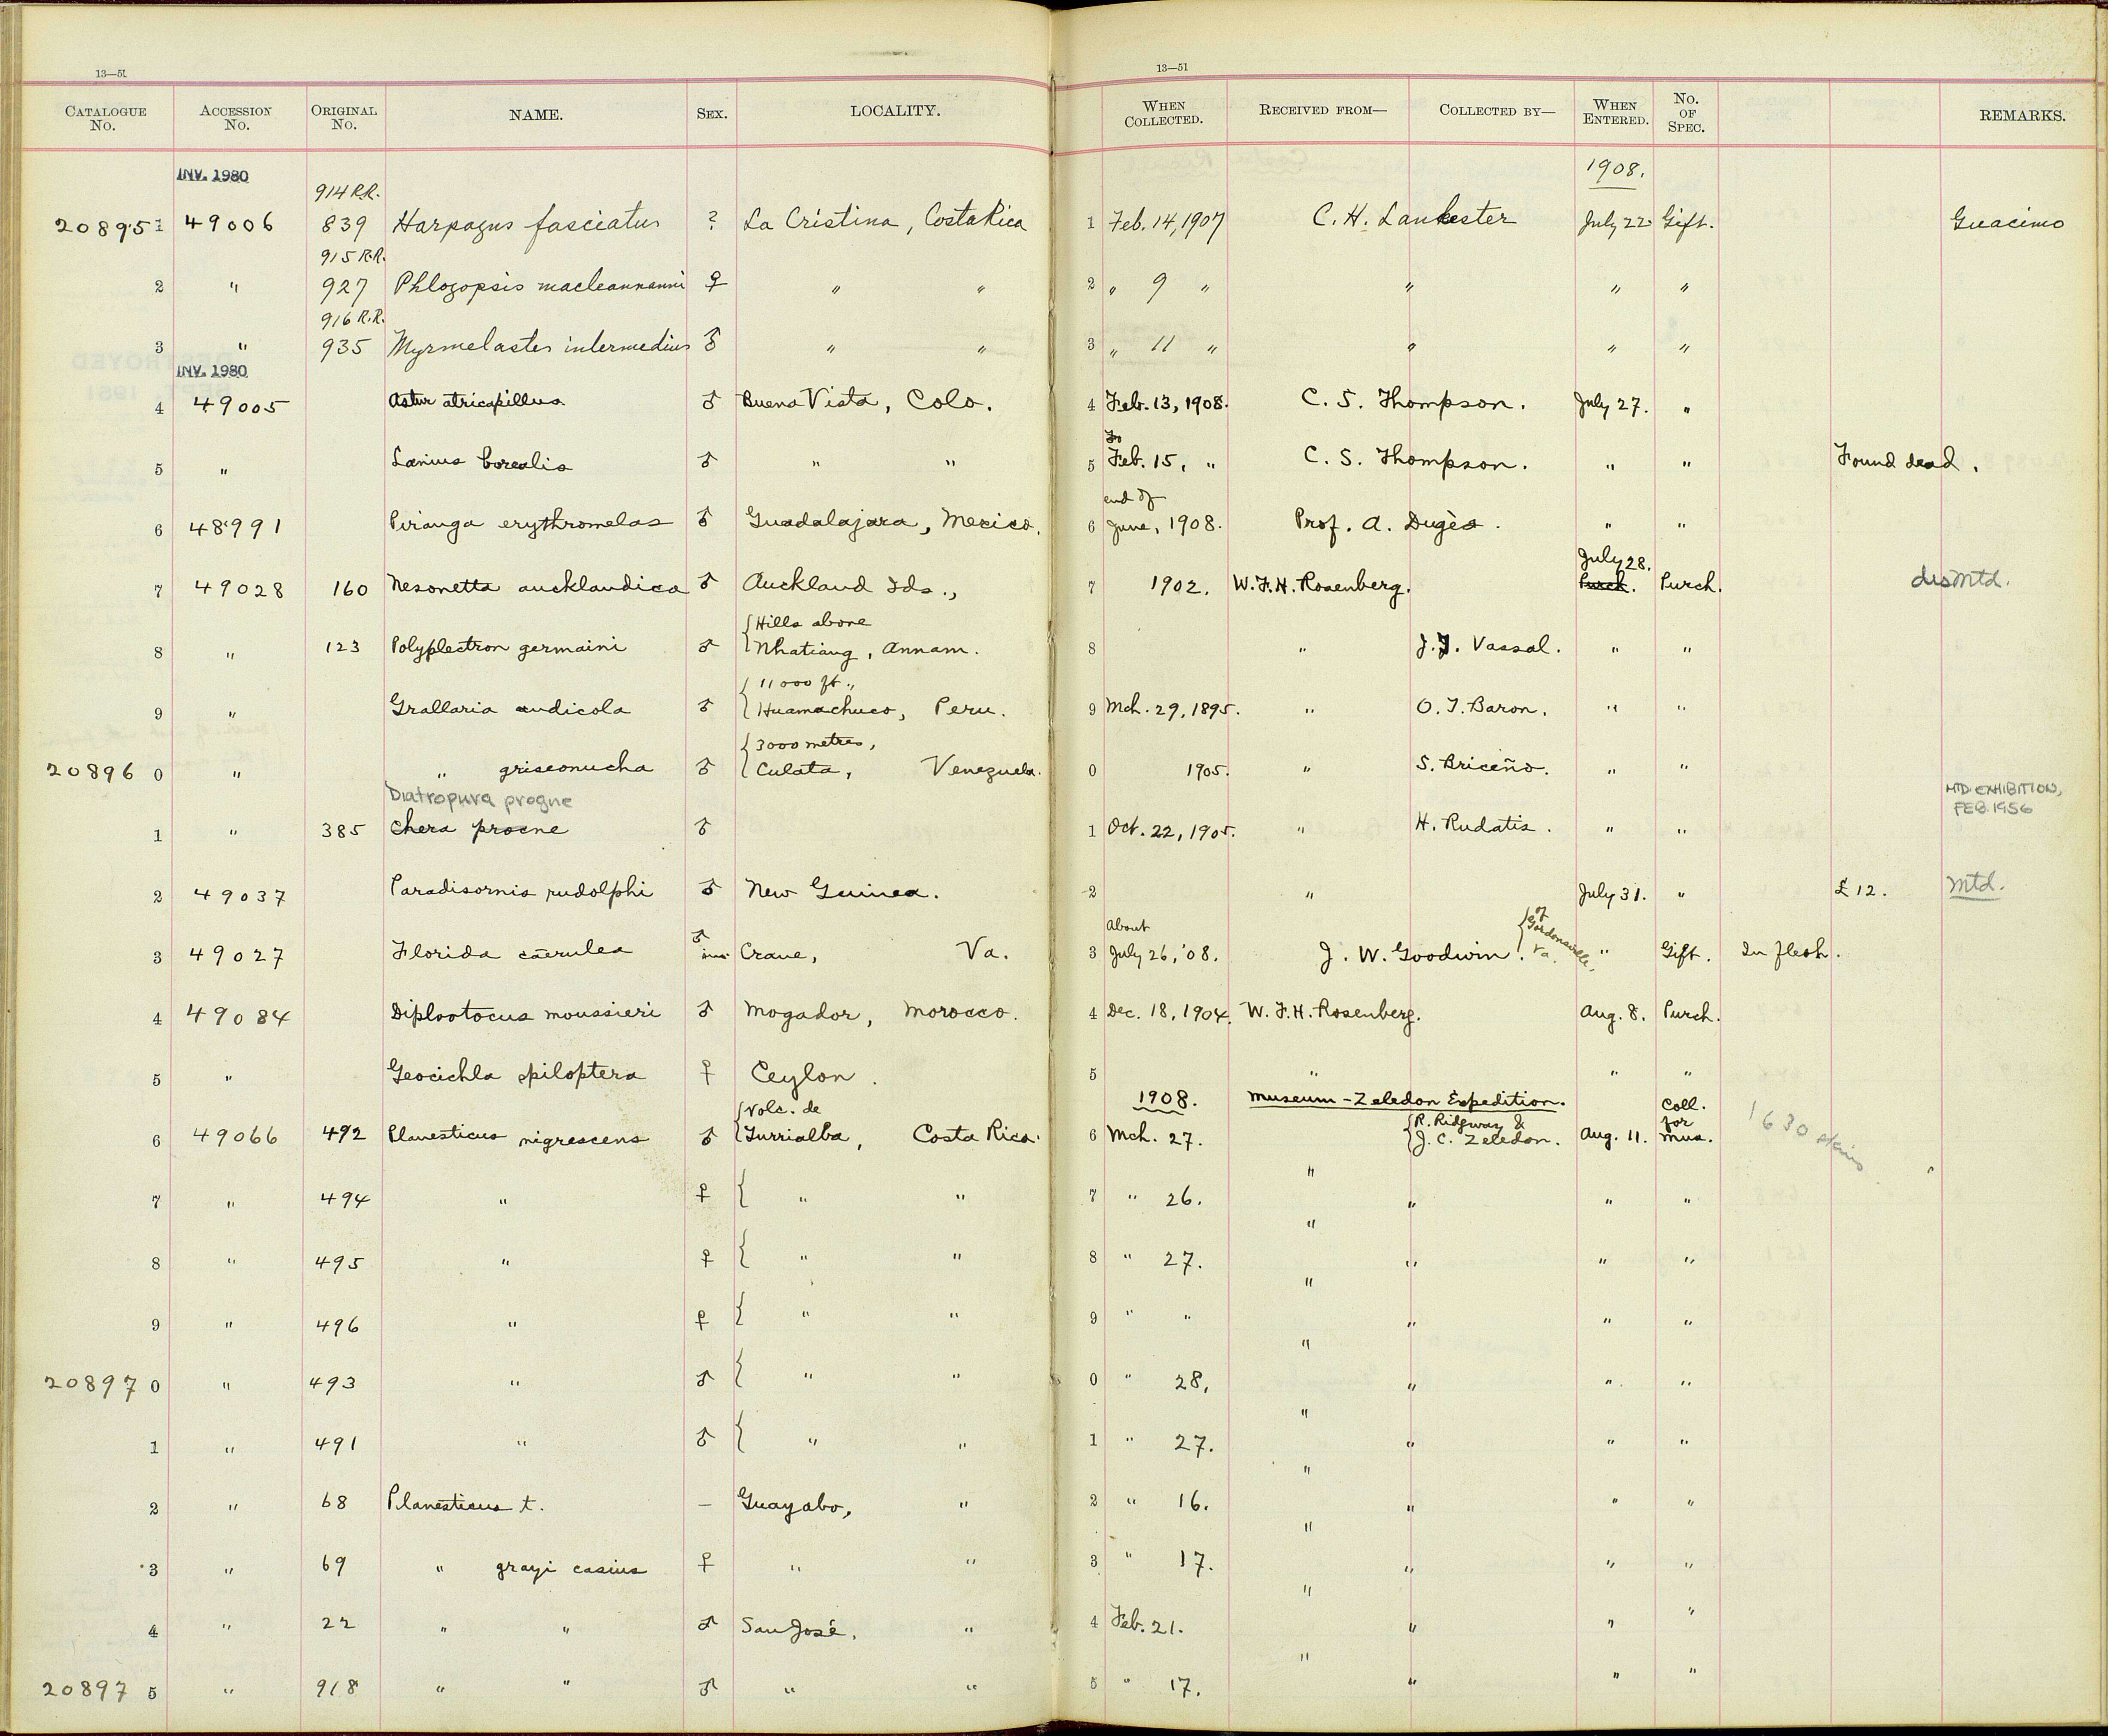 13—51
13—51
CATALOGUE No. ACCESSION No. ORIGINAL No. NAME. SEX. LOCALITY. WHEN COLLECTED. RECEIVED FROM— COLLECTED BY— WHEN ENTERED. No. OF SPEC. REMARKS.
INV. 1980 1908.
914 R.R.
208951 49006 839 Harpagus fasciatus ? La Cristina, Costa Rica 1 Feb. 14, 1907 C. H. Lankester July 22 Gift. Guacimo
915 R.R.
2 " 927 Phlogopsis macleannanni ♀ " " 2 " 9 " " " "
916 R.R.
3 " 935 Myrmelastes intermedius ♂ " " 3 " 11 " " " "
INV. 1980
4 49005 Astur atricapillus ♂ Buena Vista, Colo. 4 Feb. 13, 1908. C. S. Thompson. July 27. "
5 " Lanius borealis ♂ " " 5 Feb. 15, " C. S. Thompson. " " Found dead.
end of
6 48991 Piranga erythromelas ♂ Guadalajara, Mexico. 6 June, 1908. Prof. A. Dugès. " "
July 28.
7 49028 160 Nesonetta aucklandica ♂ Auckland Ids., 7 1902. W. F. H. Rosenberg. Purch. Purch. dismtd.
{Hills above
8 " 123 Polyplectron germaini ♂ Nhatiang, Annam. 8 " J. J. Vassal. " "
{11000 ft.,
9 " Grallaria andicola ♂ Huamachuco, Peru. 9 Mch. 29, 1895. " O. T. Baron. " "
{3000 metres,
20896 0 " " griseonucha ♂ Culata, Venezuela. 0 1905. " S. Briceño. " "
Diatropura progne MTD. EXHIBITION, FEB. 1956
1 " 385 Chera procne ♂ 1 Oct. 22, 1905. " H. Rudatis. " "
2 49037 Paradisornis rudolphi ♂ New Guinea. 2 " July 31. " £12. Mtd.
About {of Gordonsville, Va.
3 49027 Florida cærulea ♂ im. Crane, Va. 3 July 26, '08. J. W. Goodwin. " Gift. In flesh.
4 49084 Diplootocus moussieri ♂ Mogador, Morocco. 4 Dec. 18, 1904. W. F. H. Rosenberg. Aug. 8. Purch.
5 " Geocichla spiloptera ♀ Ceylon. 5 " " "
1908. Museum-Zeledon Expedition.
{Volc. de {R. Ridgway & Coll. for
6 49066 492 Planesticus nigrescens ♂ Turrialba, Costa Rica. 6 Mch. 27. J. C. Zeledon. Aug. 11. Mus. 1630 skins
7 " 494 " ♀ { " " 7 " 26. " " " "
8 " 495 " ♀ { " " 8 " 27. " " " "
9 " 496 " ♀ { " " 9 " " " " " "
20897 0 " 493 " ♂ { " " 0 " 28, " " " "
1 " 491 " ♂ { " " 1 " 27. " " " "
2 " 68 Planesticus t. – Guayabo, " 2 " 16. " " " "
3 " 69 " grayi casius ♀ " " 3 " 17. " " " "
4 " 22 " " ♂ San José, " 4 Feb. 21. " " " "
20897 5 " 918 " " ♂ " " 5 " 17. " " " "